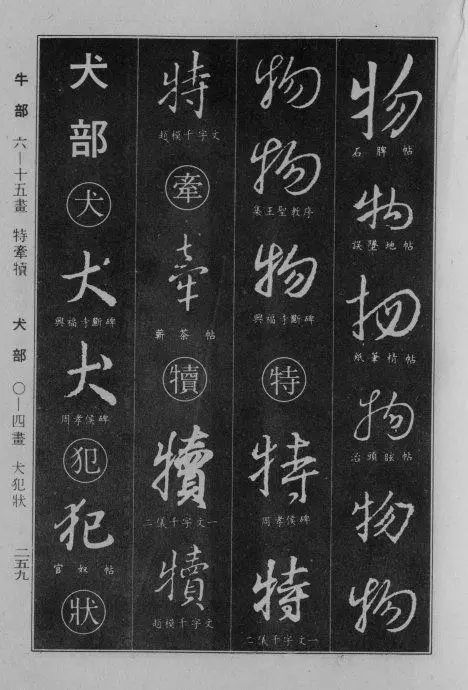 物
石脾帖
物
誤墜地帖
物
紙筆精帖
物
治頭眩帖
物
物
物
物
集王聖教序
物
興福寺斷碑
特
特
周孝侯碑
特
二儀千字文一
特
趙模千字文
牽
牽
蘄茶帖
犢
犢
二儀千字文一
犢
趙模千字文
犬部
犬
犬
興福寺斷碑
犬
周孝侯碑
犯
犯
官奴帖
狀
牛部 六—十五畫 特牽犢 犬部 〇—四畫 犬犯狀 二五九